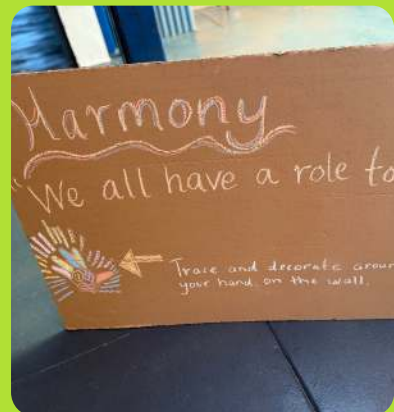 Harmony
"We all have a role to
Trace and decorate aroun
your hand. on the wall.